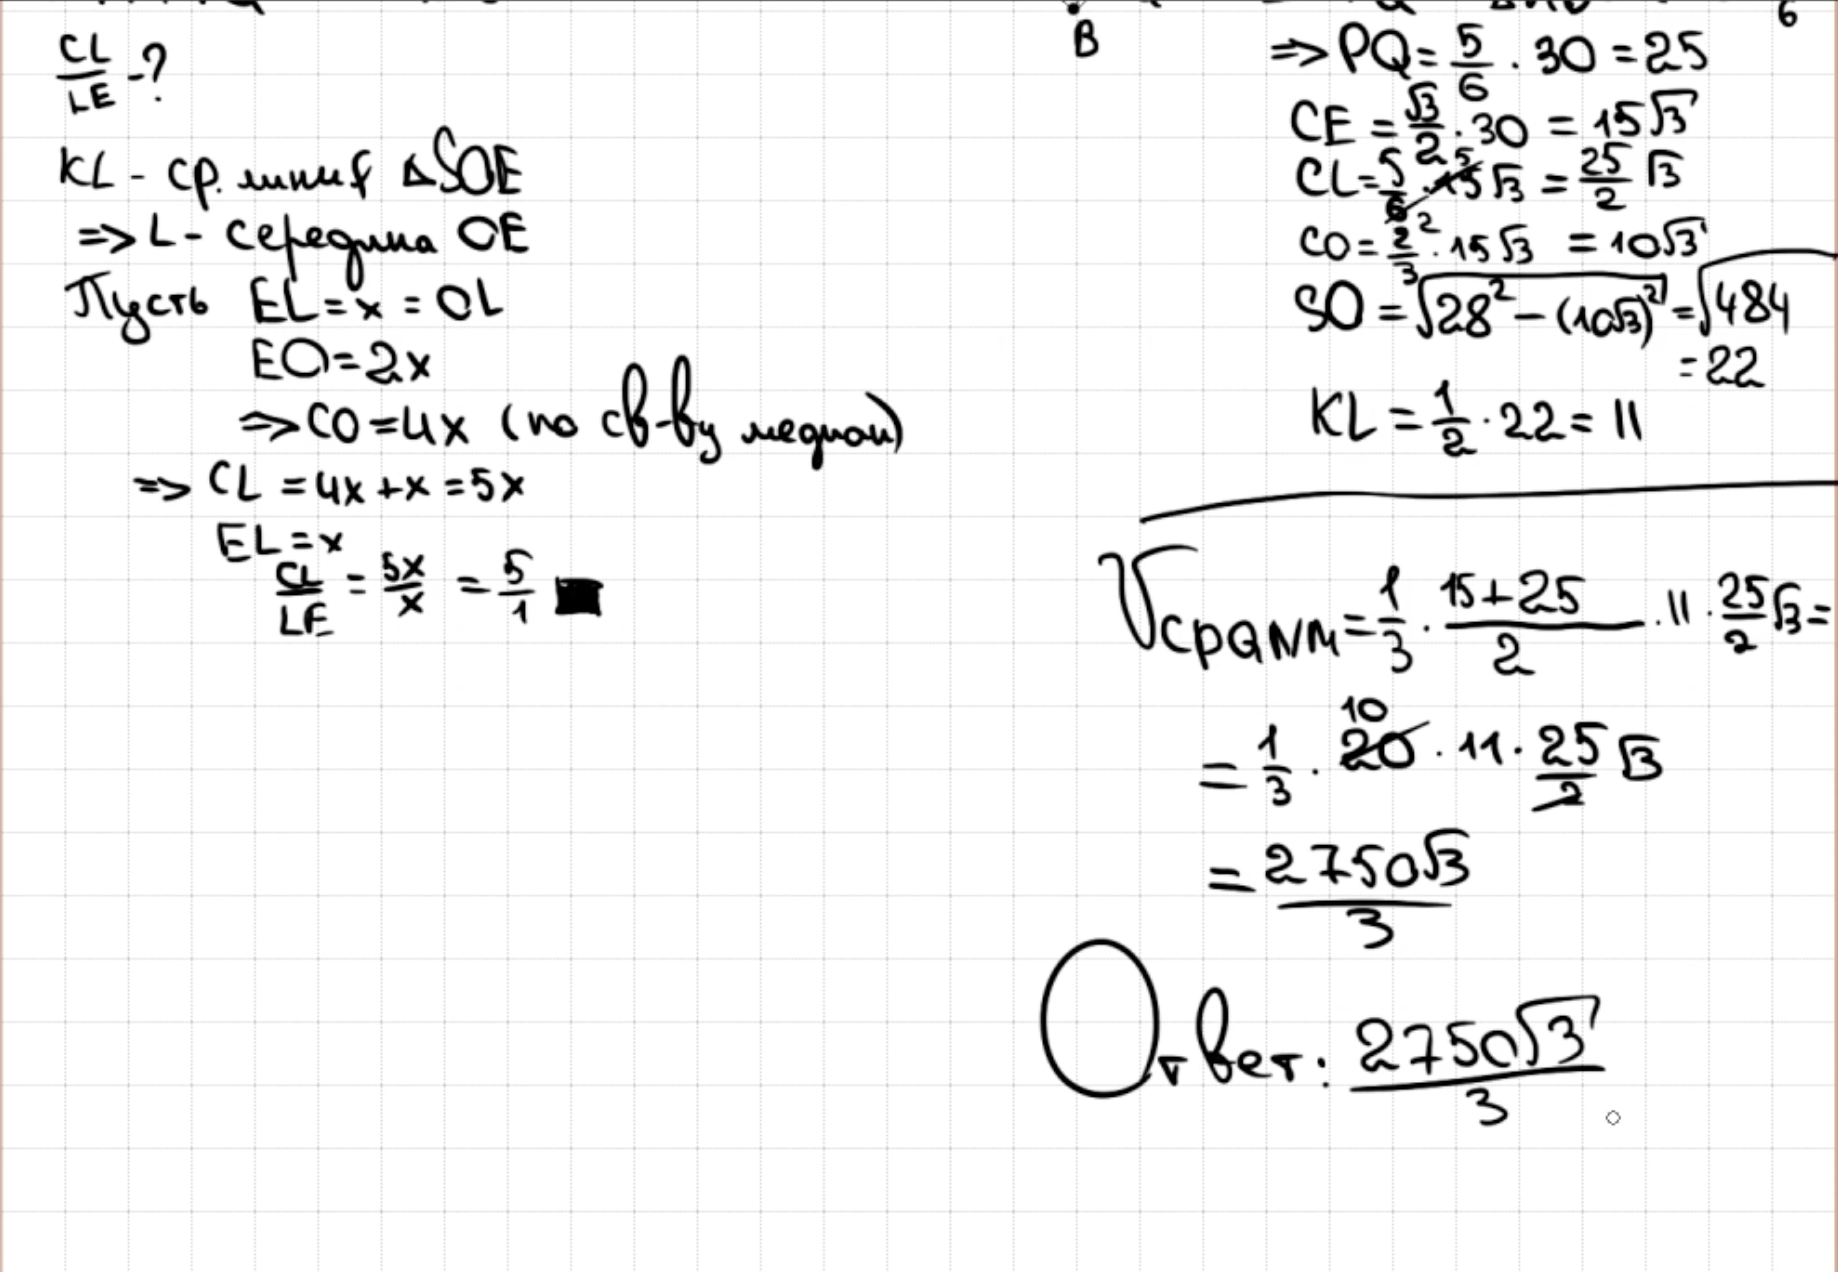 CL/LE - ?
KL - ср. линия ΔSOE
=> L - середина OE
Пусть EL = x = OL
EO = 2x
=> CO = 4x (по св-ву медиан)
=> CL = 4x + x = 5x
EL = x
CL/LE = 5x/x = 5/1
B
6
=> PQ = 5/6 · 30 = 25
CE = √3/2 · 30 = 15√3
CL = 5/6 · 15√3 = 25/2 √3
CO = 2/3 · 15√3 = 10√3
SO = √(28² - (10√3)²) = √484
= 22
KL = 1/2 · 22 = 11
V CPQNM = 1/3 · (15+25)/2 · 11 · 25/2 √3 =
= 1/3 · 20 · 11 · 25/2 √3
= 2750√3/3
Ответ: 2750√3/3